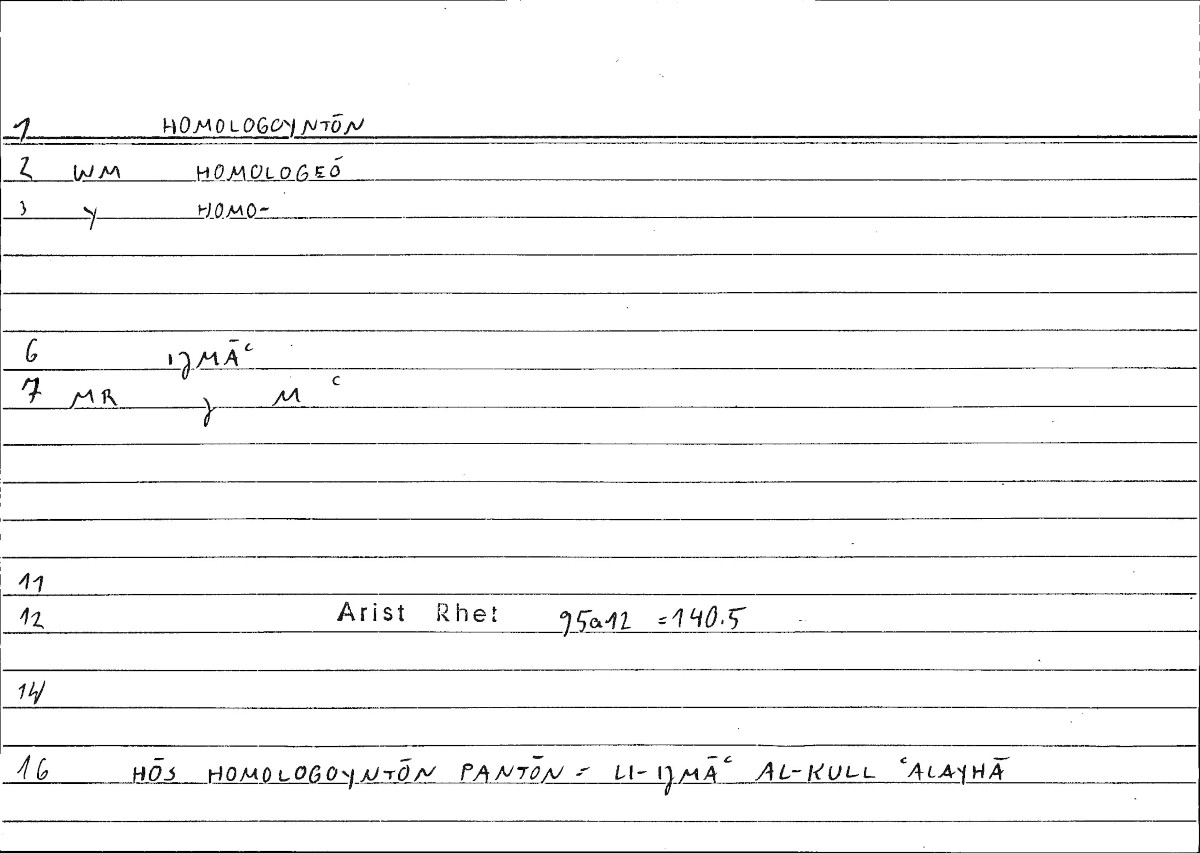 1 HOMOLOGOYNTŌN
2 WM HOMOLOGEŌ
3 Y HOMO-
6 IȷMĀʿ
7 MR ȷ M ʿ
11
12 Arist Rhet 95a12 =140.5
14
16 HŌS HOMOLOGOYNTŌN PANTŌN = LI-IȷMĀʿ AL-KULL ʿALAYHĀ